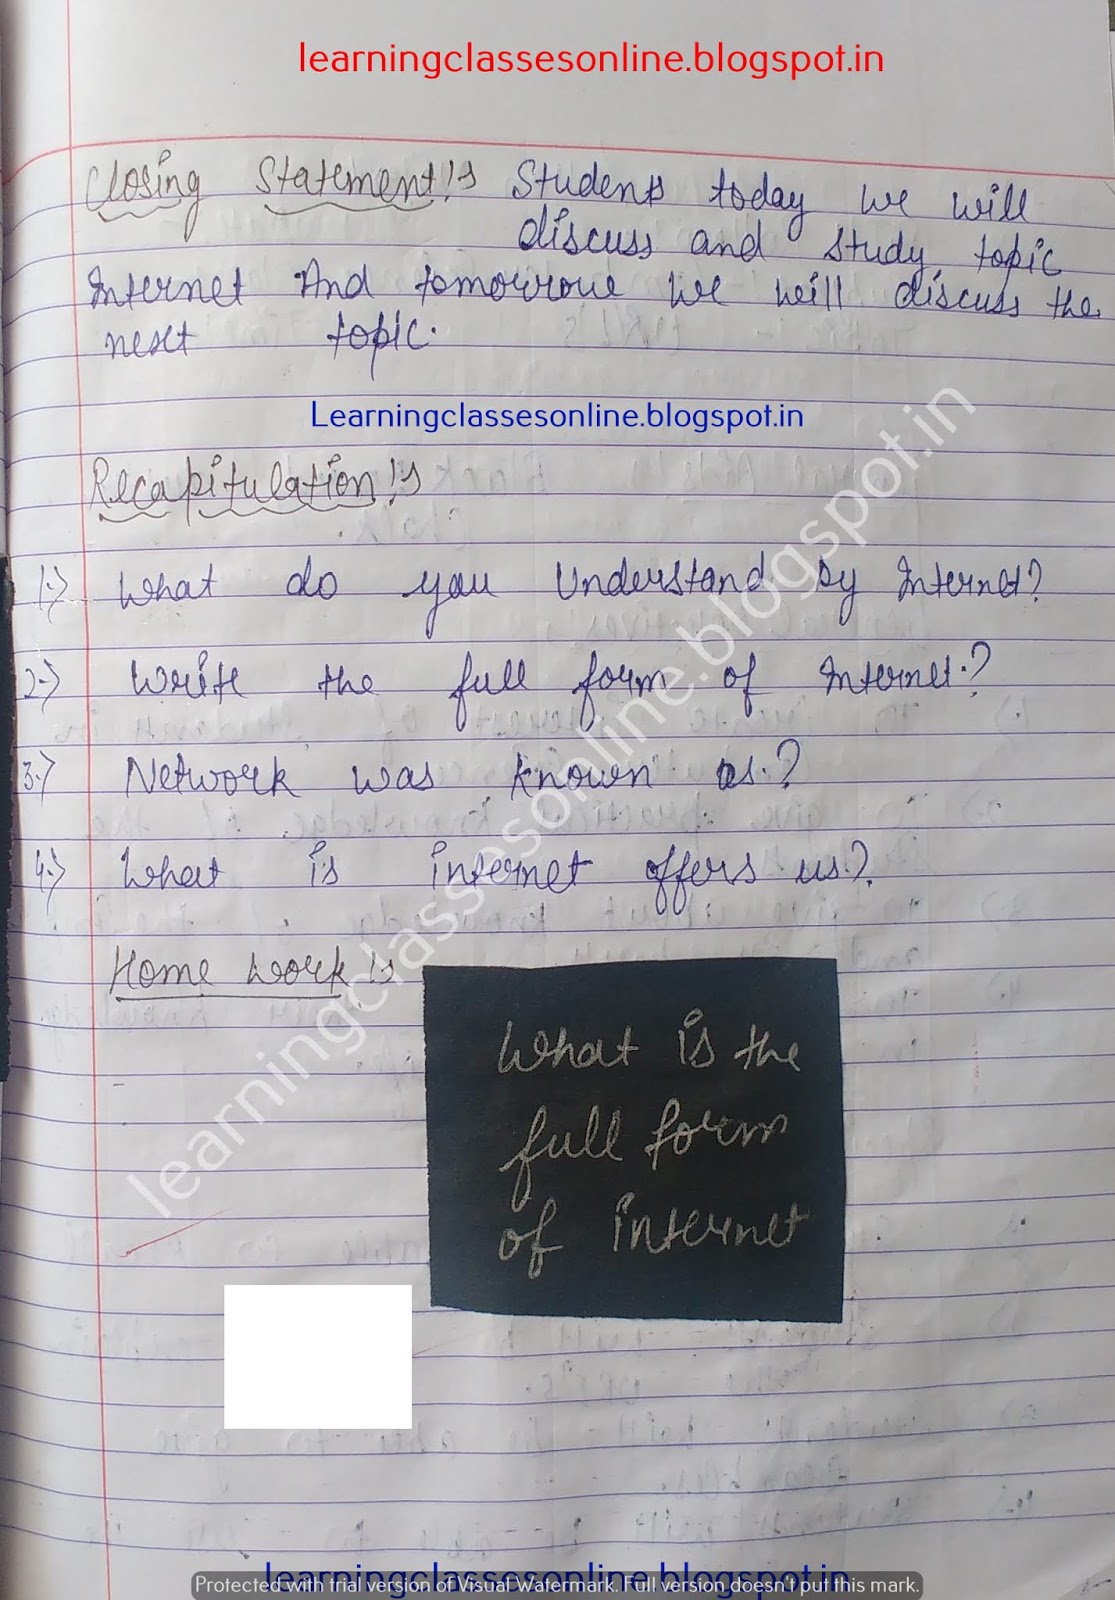 learningclassesonline.blogspot.in
Closing Statement:- Students today we will
discuss and study topic
Internet And tomorrow we will discuss the
next topic.
Learningclassesonline.blogspot.in
Recapitulation:-
1.) What do you understand by Internet?
2.) Write the full form of Internet.?
3.) Network was known as.?
4.) What is internet offers us.?
Home work:-
What is the
full form
of internet
learningclassesonline.blogspot.in
learningclassesonline.blogspot.in
Protected with trial version of Visual Watermark. Full version doesn't put this mark.